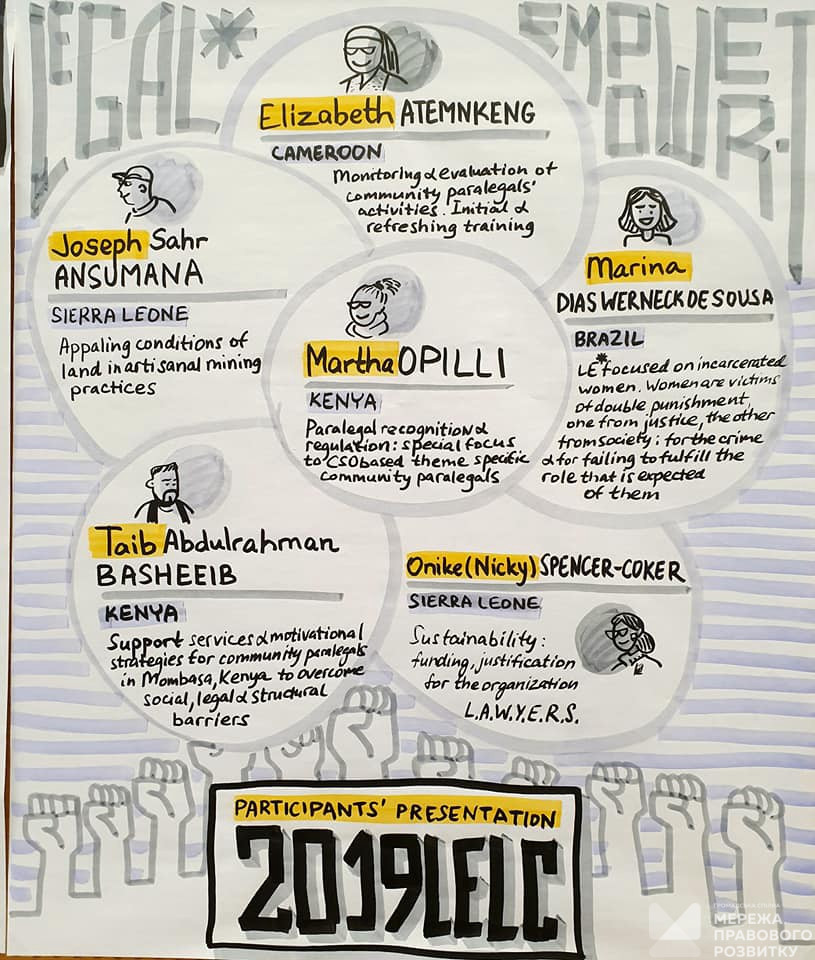 LEGAL*
EMPOWER-T
Elizabeth ATEMNKENG
CAMEROON
Monitoring & evaluation of
community paralegals'
activities. Initial &
refreshing training
Joseph Sahr
ANSUMANA
SIERRA LEONE
Appaling conditions of
land in artisanal mining
practices
Marina
DIAS WERNECK DE SOUSA
BRAZIL
LE* focused on incarcerated
women. Women are victims
of double punishment,
one from justice, the other
from society: for the crime
& for failing to fulfill the
role that is expected
of them
Martha OPILLI
KENYA
Paralegal recognition &
regulation: special focus
to CSO based theme specific
community paralegals
Taib Abdulrahman
BASHEEIB
KENYA
Support services & motivational
strategies for community paralegals
in Mombasa, Kenya to overcome
social, legal & structural
barriers
Onike (Nicky) SPENCER-COKER
SIERRA LEONE
Sustainability:
funding, justification
for the organization
L.A.W.Y.E.R.S.
PARTICIPANTS' PRESENTATION
2019 LELC
ГРОМАДСЬКА СПІЛКА
МЕРЕЖА
ПРАВОВОГО
РОЗВИТКУ